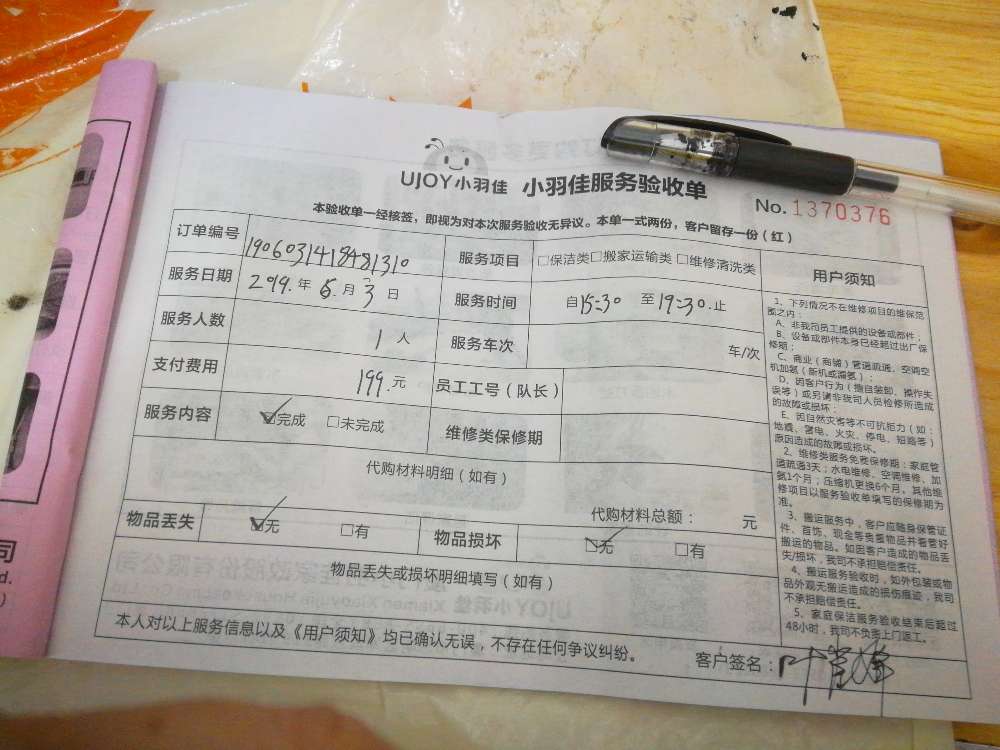 UJOY小羽佳 小羽佳服务验收单
No. 1370376
本验收单一经核签，即视为对本次服务验收无异议。本单一式两份，客户留存一份（红）
订单编号 190603141848131０ 服务项目 □保洁类□搬家运输类□维修清洗类
服务日期 2019.年 6.月 3 日 服务时间 自15:30 至19:30.止
服务人数 1 人 服务车次 车/次
支付费用 199.元 员工工号（队长）
服务内容 ☑完成 □未完成 维修类保修期
代购材料明细（如有）
代购材料总额： 元
物品丢失 ☑无 □有 物品损坏 ☑无 □有
物品丢失或损坏明细填写（如有）
本人对以上服务信息以及《用户须知》均已确认无误，不存在任何争议纠纷。
客户签名：
用户须知
1、下列情况不在维修项目的维保范
围之内：
A、非我司员工提供的设备或部件；
B、设备或部件本身已经超过出厂保
修期；
C、商业（商铺）管道疏通、空调空
机加氨（新机或漏氨）；
D、因客户行为（擅自装卸、操作失
误等）或另请非我司人员检修所造成
的故障或损坏；
E、因自然灾害等不可抗拒力（如：
地震、雷电、火灾、停电、短路等）
原因造成的故障或损坏。
2、维修类服务免费保修期：家庭管
道疏通3天；水电维修、空调维修、加
氨1个月；压缩机更换6个月。其他维
修项目以服务验收单填写的保修期为
准。
3、搬运服务中，客户应随身保管证
件、首饰、现金等贵重物品并看管好
搬运的物品。如因客户造成的物品丢
失/损坏，我司不承担赔偿责任。
4、搬运服务验收时，如外包装或物
品外观无搬运造成的损伤痕迹，我司
不承担赔偿责任。
5、家庭保洁服务验收结束后超过
48小时，我司不负责上门返工。
司
d.
)